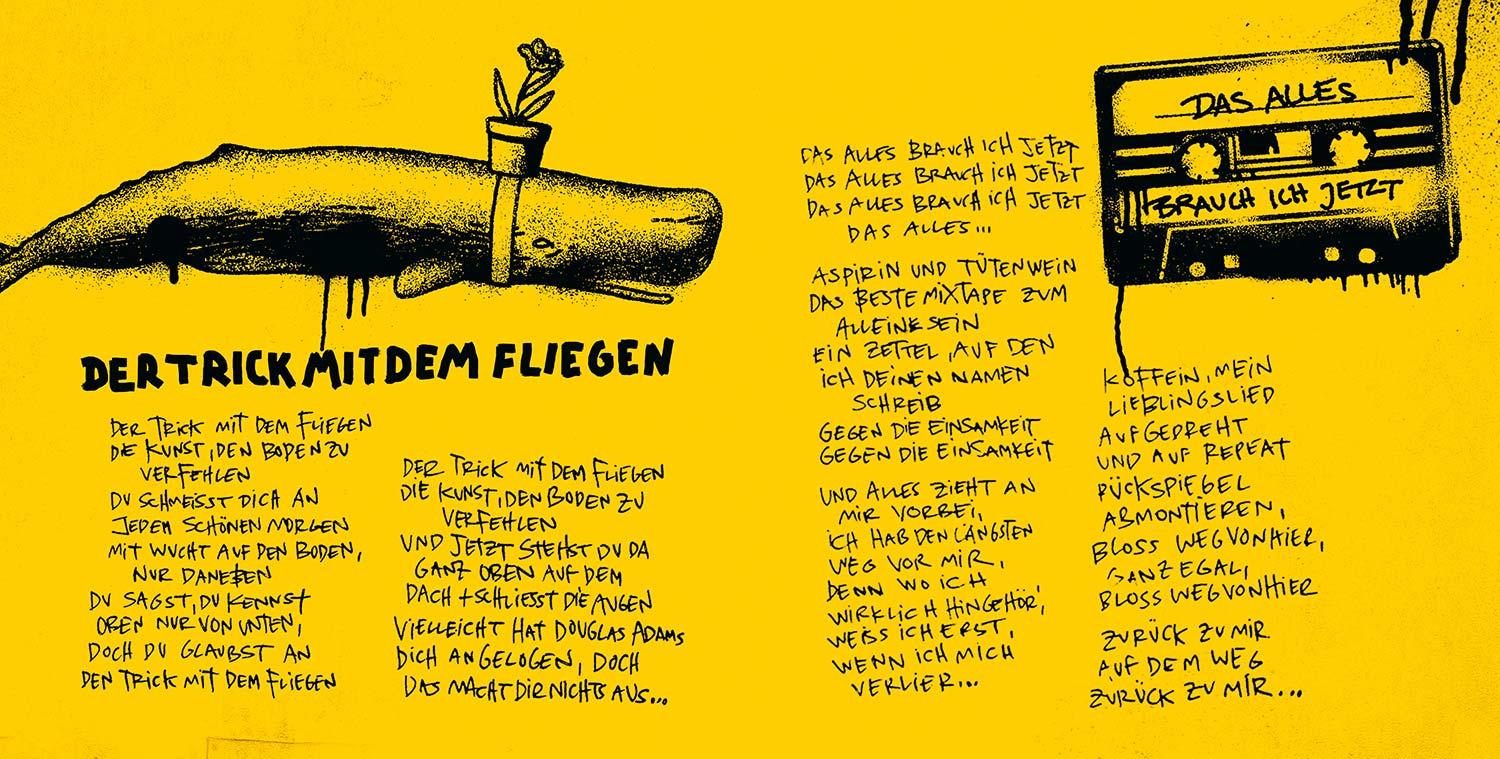 DER TRICK MIT DEM FLIEGEN
DER TRICK MIT DEM FLIEGEN
DIE KUNST, DEN BODEN ZU
VERFEHLEN
DU SCHMEISST DICH AN
JEDEM SCHÖNEN MORGEN
MIT WUCHT AUF DEN BODEN,
NUR DANEBEN
DU SAGST, DU KENNST
OBEN NUR VON UNTEN,
DOCH DU GLAUBST AN
DEN TRICK MIT DEM FLIEGEN
DER TRICK MIT DEM FLIEGEN
DIE KUNST, DEN BODEN ZU
VERFEHLEN
UND JETZT STEHST DU DA
GANZ OBEN AUF DEM
DACH + SCHLIESST DIE AUGEN
VIELLEICHT HAT DOUGLAS ADAMS
DICH ANGELOGEN, DOCH
DAS MACHT DIR NICHTS AUS...
DAS ALLES
BRAUCH ICH JETZT
DAS ALLES BRAUCH ICH JETZT
DAS ALLES BRAUCH ICH JETZT
DAS ALLES BRAUCH ICH JETZT
DAS ALLES...
ASPIRIN UND TÜTENWEIN
DAS BESTE MIXTAPE ZUM
ALLEINESEIN
EIN ZETTEL, AUF DEN
ICH DEINEN NAMEN
SCHREIB
GEGEN DIE EINSAMKEIT
GEGEN DIE EINSAMKEIT
UND ALLES ZIEHT AN
MIR VORBEI,
ICH HAB DEN LÄNGSTEN
WEG VOR MIR,
DENN WO ICH
WIRKLICH HINGEHÖR,
WEISS ICH ERST,
WENN ICH MICH
VERLIER...
KOFFEIN, MEIN
LIEBLINGSLIED
AUFGEDREHT
UND AUF REPEAT
RÜCKSPIEGEL
ABMONTIEREN,
BLOSS WEG VON HIER,
GANZ EGAL,
BLOSS WEG VON HIER
ZURÜCK ZU MIR
AUF DEM WEG
ZURÜCK ZU MIR...